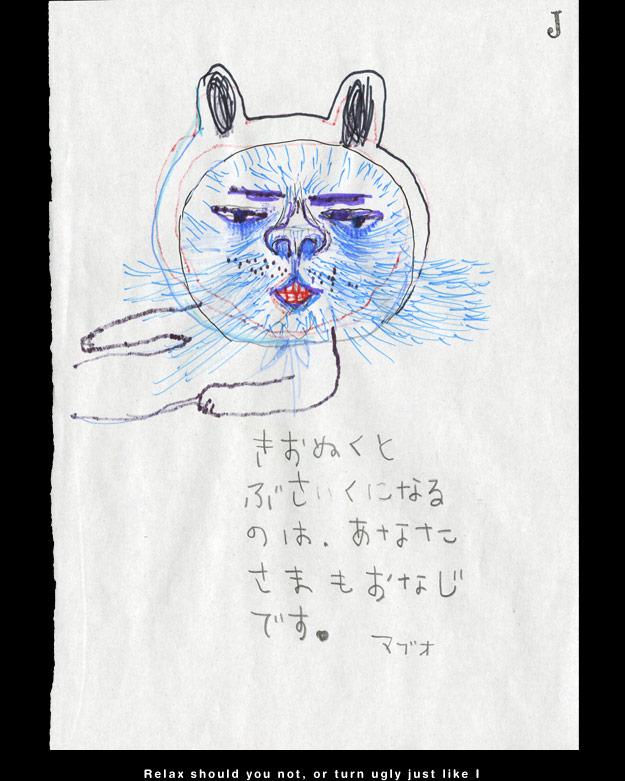 J
きおぬくと
ぶさいくになる
のは、あなた
さまもおなじ
です。
マブオ
Relax should you not, or turn ugly just like I